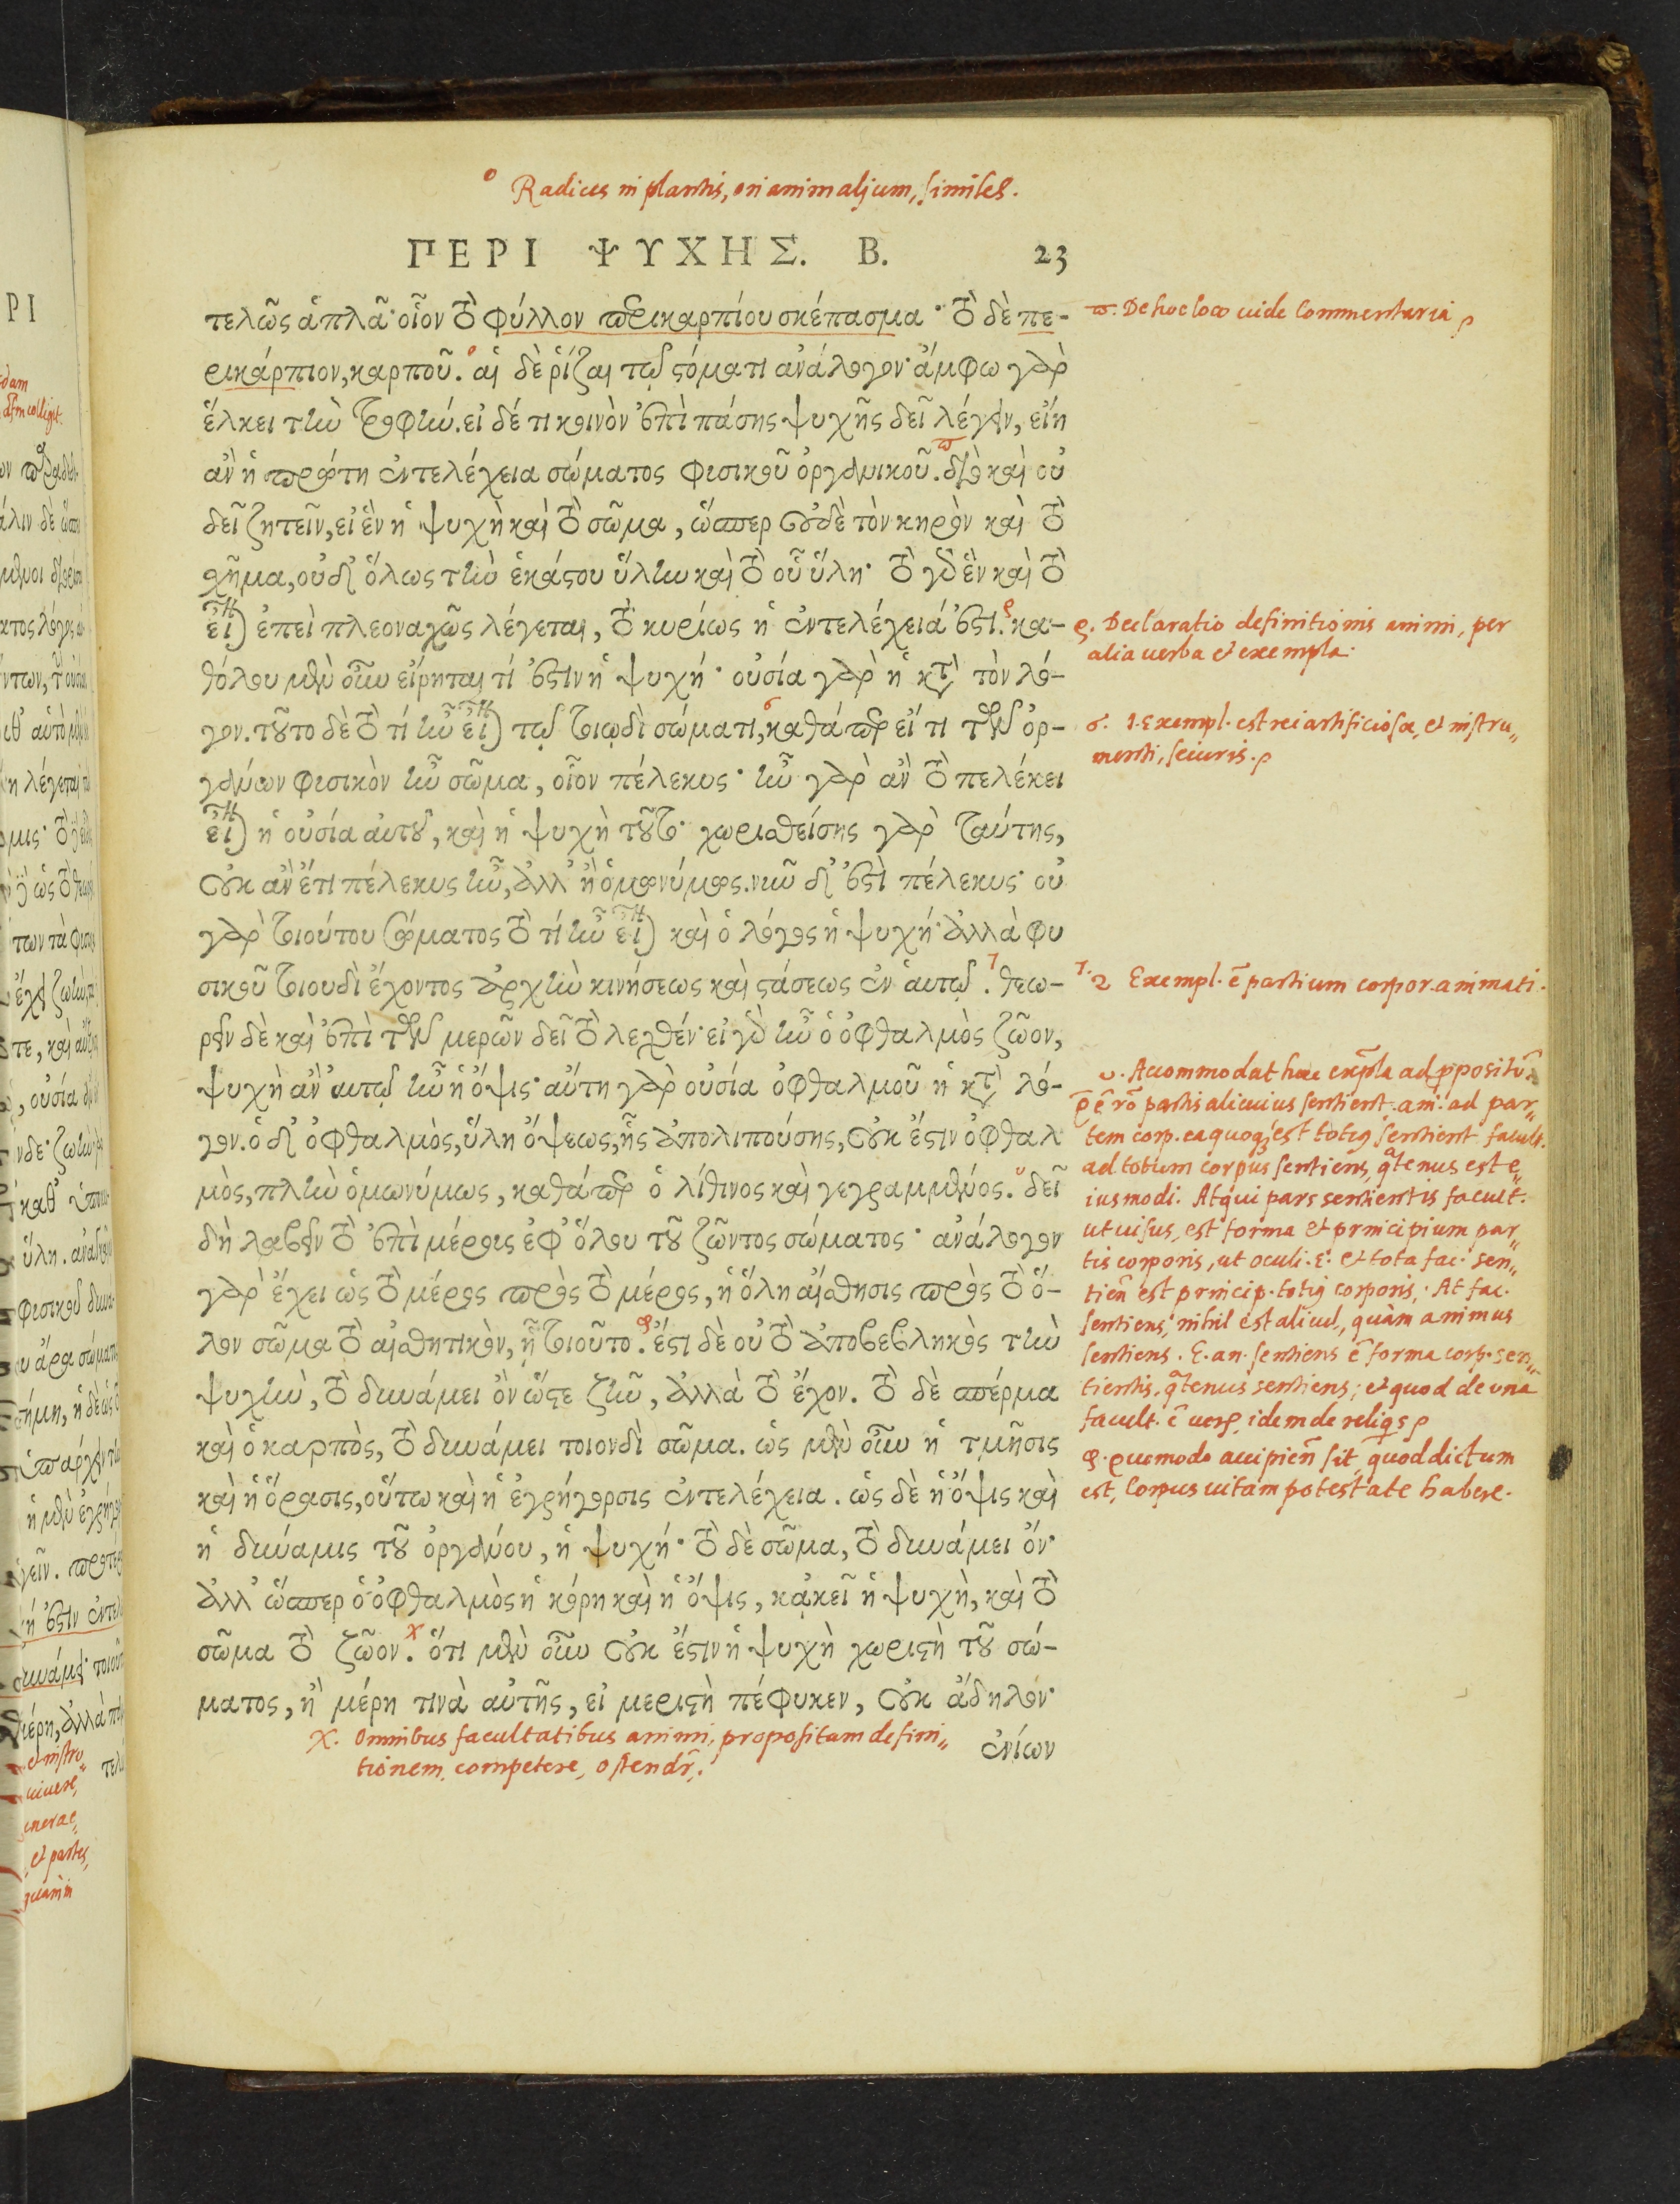 ο Radices in plantis, ori animalium, similes.
ΠΕΡΙ ΨΥΧΗΣ. Β. 23
τελῶς ἁπλᾶ· οἷον τὸ φύλλον περικαρπίου σκέπασμα· τὸ δὲ πε-
ρικάρπιον, καρποῦ. αἱ δὲ ῥίζαι τῷ στόματι ἀνάλογον· ἄμφω γὰρ
ἕλκει τὴν τροφήν. εἰ δέ τι κοινὸν ἐπὶ πάσης ψυχῆς δεῖ λέγειν, εἴη
ἂν ἡ πρώτη ἐντελέχεια σώματος φυσικοῦ ὀργανικοῦ. διὸ καὶ οὐ
δεῖ ζητεῖν, εἰ ἓν ἡ ψυχὴ καὶ τὸ σῶμα, ὥσπερ οὐδὲ τὸν κηρὸν καὶ τὸ
σχῆμα, οὐδ' ὅλως τὴν ἑκάστου ὕλην καὶ τὸ οὗ ὕλη· τὸ γὰρ ἓν καὶ τὸ
εἶναι ἐπεὶ πλεοναχῶς λέγεται, τὸ κυρίως ἡ ἐντελέχειά ἐστι. κα-
θόλου μὲν οὖν εἴρηται τί ἐστιν ἡ ψυχή· οὐσία γὰρ ἡ κατὰ τὸν λό-
γον. τοῦτο δὲ τὸ τί ἦν εἶναι τῷ τοιῳδὶ σώματι, καθάπερ εἴ τι τῶν ὀρ-
γάνων φυσικὸν ἦν σῶμα, οἷον πέλεκυς· ἦν γὰρ ἂν τὸ πελέκει
εἶναι ἡ οὐσία αὐτοῦ, καὶ ἡ ψυχὴ τοῦτο· χωρισθείσης γὰρ ταύτης,
οὐκ ἂν ἔτι πέλεκυς ἦν, ἀλλ' ἢ ὁμωνύμως. νῦν δ' ἐστὶ πέλεκυς· οὐ
γὰρ τοιούτου σώματος τὸ τί ἦν εἶναι καὶ ὁ λόγος ἡ ψυχή· ἀλλὰ φυ
σικοῦ τοιουδὶ ἔχοντος ἀρχὴν κινήσεως καὶ στάσεως ἐν αὑτῷ. θεω-
ρεῖν δὲ καὶ ἐπὶ τῶν μερῶν δεῖ τὸ λεχθέν· εἰ γὰρ ἦν ὁ ὀφθαλμὸς ζῶον,
ψυχὴ ἂν αὐτῷ ἦν ἡ ὄψις· αὕτη γὰρ οὐσία ὀφθαλμοῦ ἡ κατὰ λό-
γον. ὁ δ' ὀφθαλμὸς, ὕλη ὄψεως, ἧς ἀπολιπούσης, οὐκ ἔστιν ὀφθαλ
μὸς, πλὴν ὁμωνύμως, καθάπερ ὁ λίθινος καὶ γεγραμμένος. δεῖ
δὴ λαβεῖν τὸ ἐπὶ μέρους ἐφ' ὅλου τοῦ ζῶντος σώματος· ἀνάλογον
γὰρ ἔχει ὡς τὸ μέρος πρὸς τὸ μέρος, ἡ ὅλη αἴσθησις πρὸς τὸ ὅ-
λον σῶμα τὸ αἰσθητικὸν, ᾗ τοιοῦτο. ἔστι δὲ οὐ τὸ ἀποβεβληκὸς τὴν
ψυχὴν, τὸ δυνάμει ὂν ὥστε ζῆν, ἀλλὰ τὸ ἔχον. τὸ δὲ σπέρμα
καὶ ὁ καρπὸς, τὸ δυνάμει τοιονδὶ σῶμα. ὡς μὲν οὖν ἡ τμῆσις
καὶ ἡ ὅρασις, οὕτω καὶ ἡ ἐγρήγορσις ἐντελέχεια. ὡς δὲ ἡ ὄψις καὶ
ἡ δύναμις τοῦ ὀργάνου, ἡ ψυχή· τὸ δὲ σῶμα, τὸ δυνάμει ὄν·
ἀλλ' ὥσπερ ὁ ὀφθαλμὸς ἡ κόρη καὶ ἡ ὄψις, κἀκεῖ ἡ ψυχὴ, καὶ τὸ
σῶμα τὸ ζῶον. ὅτι μὲν οὖν οὐκ ἔστιν ἡ ψυχὴ χωριστὴ τοῦ σώ-
ματος, ἢ μέρη τινὰ αὐτῆς, εἰ μεριστὴ πέφυκεν, οὐκ ἄδηλον·
ἐνίων
χ. Omnibus facultatibus animi, propositam defini„
tionem competere, ostendr̄.
ϖ. De hoc loco uide Commentaria
ρ. Declaratio definitionis animi, per
alia uerba et exempla.
σ. 1. Exempl. est rei artificiosæ, et instru„
menti, securis.
τ. 2 Exempl. ē partium corpor. animati.
υ. Accommodat hæc exēpla ad ppositū.
partis alicuius sentient. ani. ad par„
tem corp. ea quoq; est totiꝰ sentient. facult.
ad totum corpus sentiens, q̄tenus est e„
iusmodi. Atqui pars sentientis facult.
ut uisus, est forma et principium par„
tis corporis, ut oculi. E. et tota fac. sen„
tien̄ est princip. totiꝰ corporis. At fac.
sentiens, nihil est aliud, quàm animus
sentiens. E. an. sentiens ē forma corp. sen„
tientis, q̄tenus sentiens; et quod de una
facult. ē uerū, idem de reliqs
φ. Quomodo accipien̄ sit, quod dictum
est, Corpus uitam potestate habere.